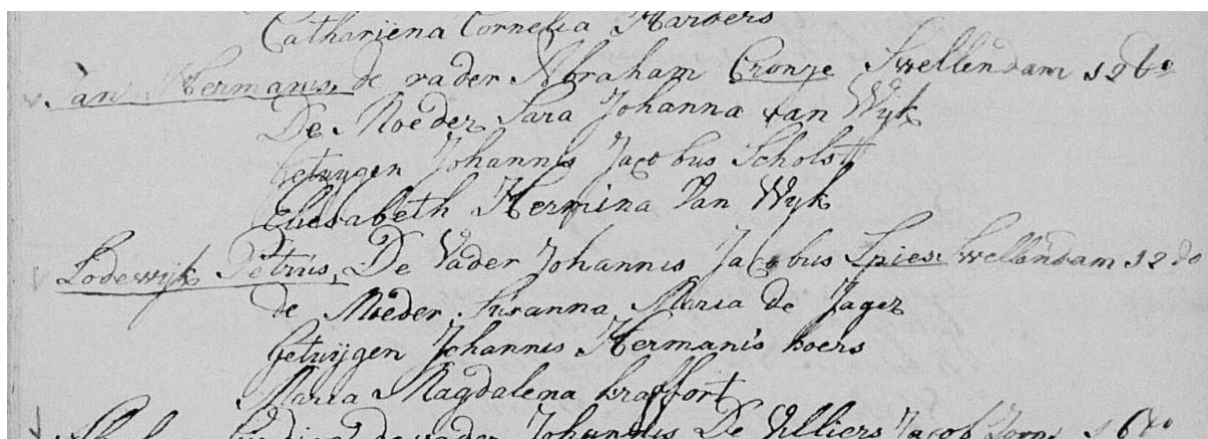 Cathariena Cornelia Harbers
Jan Hermanus, de vader Abraham Cronje Swellendam 12
De Moeder Sara Johanna van Wijk
getuijgen Johannis Jacobus Scholst
Eliesabeth Hermina Van Wijk
Lodewijk Petrus, De Vader Johannis Jacobus Spies Swellendam 12 do
de Moeder Susanna Maria de Jager
getuijgen Johannis Hermanis boers
Maria Magdalena kraffort
de vader Johannis De Villiers Jacob Zoon